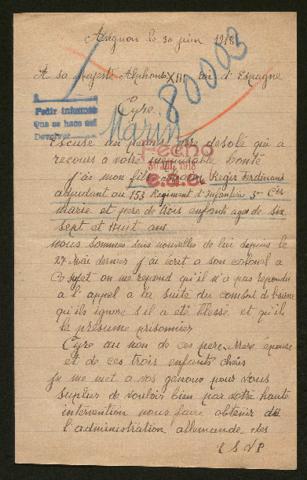 Avignon le 30 juin 1918
80003
A sa Majesté Alphonse XIII Roi d'Espagne
Pedir informes
que se hace así
Cyre
Marin
Hecho
Escuse un pauvre désolé qui à
recours a votre bonté
j'ai mon fils Marin Régis Ferdinand
adjudant au 153 Régiment d'Infanterie 3me Cie
marie et père de trois enfants agés de six
sept et Huit ans
nous sommes sans nouvelles de lui depuis le
27 Mai dernier j'ai écrit a son colonel a
Ce sujet on me répond qu'il n'a pas répondu
à l'appel a la suite du combat de
qu'ils ignore s'il a été blessé et qu'ils
le présume prisonnier
Cyre au non de ces père Mère épouse
et de ces trois enfants chéris
je me met a vos genoux pour vous
suplier de vouloir bien par votre haute
intervention nous faire obtenir de
l'administration allemande des
T S V P